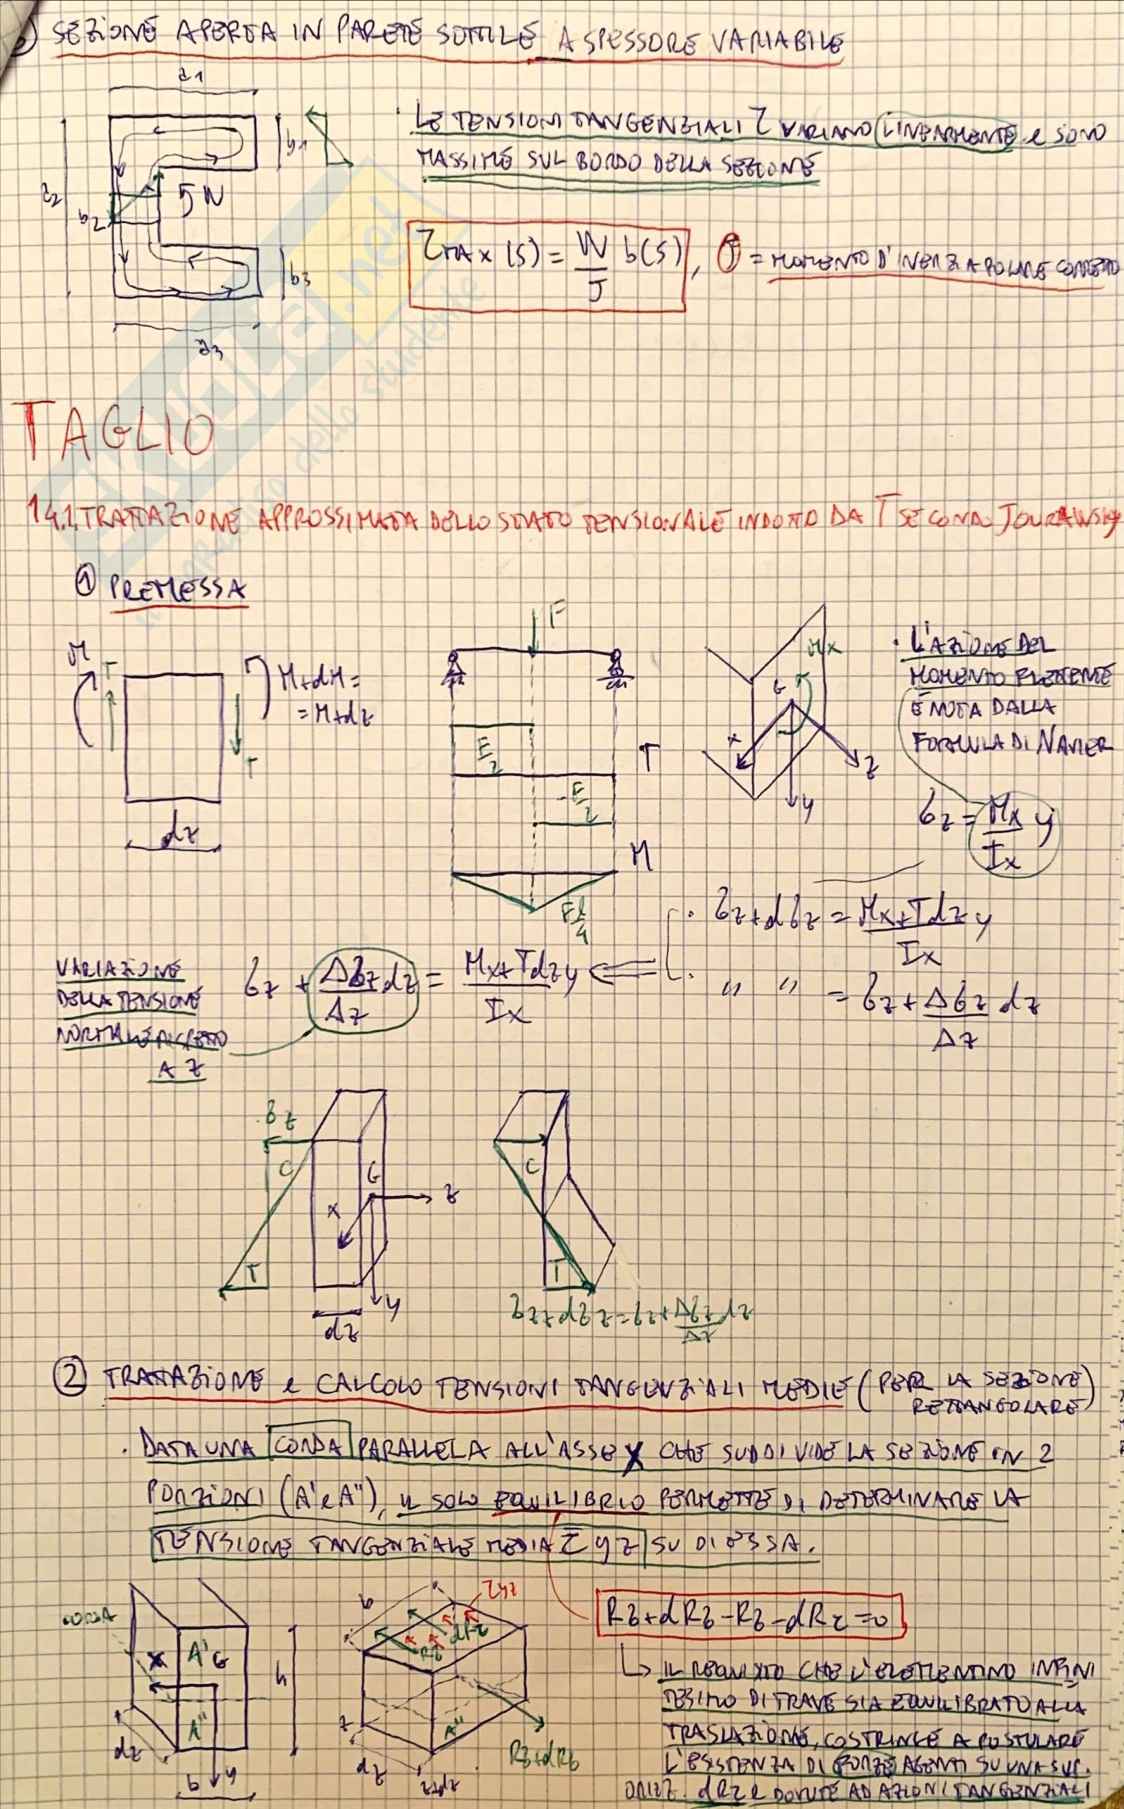 SEZIONE APERTA IN PARETE SOTTILE A SPESSORE VARIABILE
a1
b1
a2
b2
5N
b3
a3
. LE TENSIONI TANGENZIALI τ VARIANO LINEARMENTE e SONO
MASSIME SUL BORDO DELLA SEZIONE
τMAX (S) = N/J b(S), J = MOMENTO D'INERZIA POLARE CORRETTO
SKUOLA.net
dello studente
TAGLIO
14.1 TRATTAZIONE APPROSSIMATA DELLO STATO TENSIONALE INDOTTO DA T SECONDO JOURAWSKY
① PREMESSA
M
T
M+dM=
=M+dz
T
dz
F
F/2
T
-F/2
M
Fl/4
Mx
G
x
z
y
. L'AZIONE DEL
MOMENTO FLETTENTE
È NOTA DALLA
FORMULA DI NAVIER
σz = Mx/Ix y
. σz+dσz = Mx+Tdz/Ix y
. " " = σz + Δσz/Δz dz
σz + Δσz/Δz dz = Mx+Tdz/Ix y
VARIAZIONE
DELLA TENSIONE
NORMALE RISPETTO
A Z
σz
C
T
G
x
z
y
dz
C
T
σz+dσz=σz+Δσz/Δz dz
② TRATTAZIONE e CALCOLO TENSIONI TANGENZIALI MEDIE (PER LA SEZIONE
RETTANGOLARE)
. DATA UNA CORDA PARALLELA ALL'ASSE X CHE SUDDIVIDE LA SEZIONE IN 2
PORZIONI (A' e A"), IL SOLO EQUILIBRIO PERMETTE DI DETERMINARE LA
TENSIONE TANGENZIALE MEDIA τ̄yz SU DI ESSA.
CORDA
x
A'
G
A"
dz
b
y
h
b
τyz
dRτ
Rσ
z
A"
dz
z+dz
Rσ+dRσ
Rσ+dRσ-Rσ-dRτ=0
↳ IL REQUISITO CHE L'ELEMENTINO INFINI
TESIMO DI TRAVE SIA EQUILIBRATO ALLA
TRASLAZIONE, COSTRINGE A POSTULARE
L'ESISTENZA DI FORZE AGENTI SU UNA SUP.
ORIZZ. dRτ DOVUTE AD AZIONI TANGENZIALI